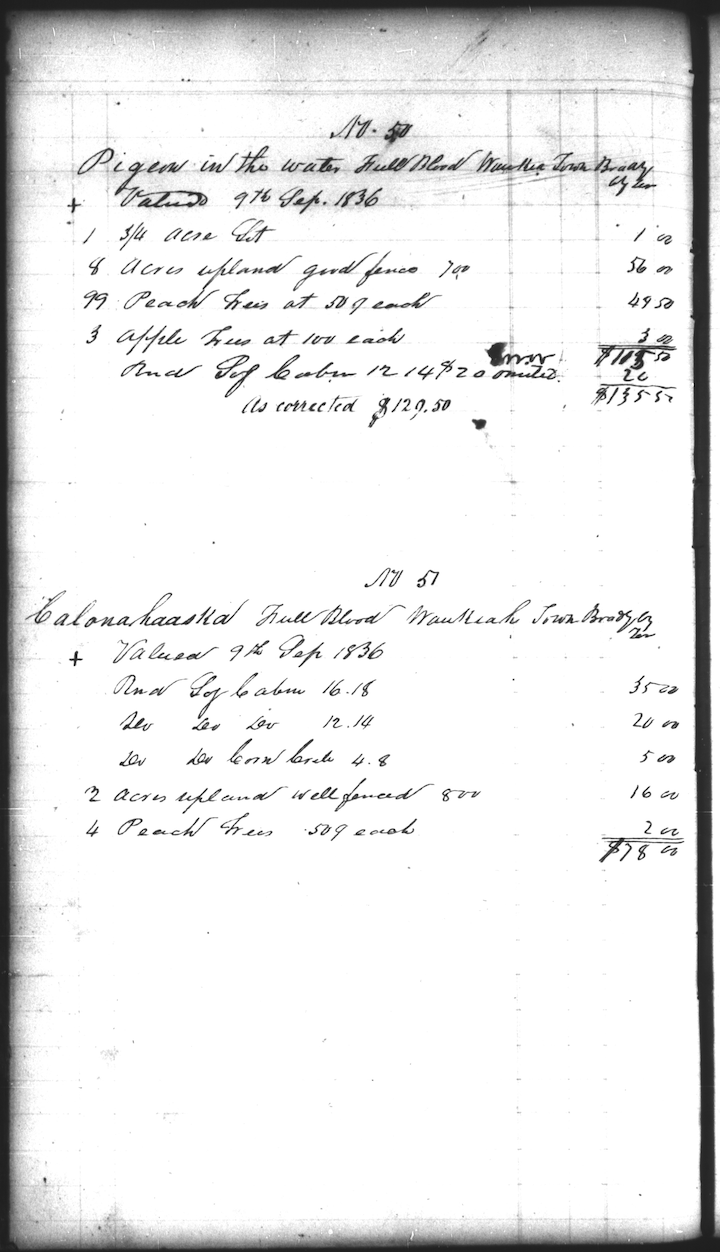 No. 50
Pigeon in the water Full Blood Waukia Town Bradly
Cy Ten
+ Valued 9th Sep. 1836
1 3/4 Acre Lot 1 00
8 Acres upland good fence 700 56 00
99 Peach Trees at 50¢ each 49 50
3 Apple Trees at 100 each 3 00
Error $113 50
Rnd Log Cabin 12 14 $20 omitted. 20
$135 50
As corrected $129.50
No 51
Calonahaaska Full Blood Waukiah Town Bradly Cy
Ten
+ Valued 9th Sep 1836
Rnd Log Cabin 16.18 35 00
Do Do Do 12.14 20 00
Do Do Corn Crib 4.8 5 00
2 Acres upland well fenced 800 16 00
4 Peach Trees 50¢ each 2 00
$78 00